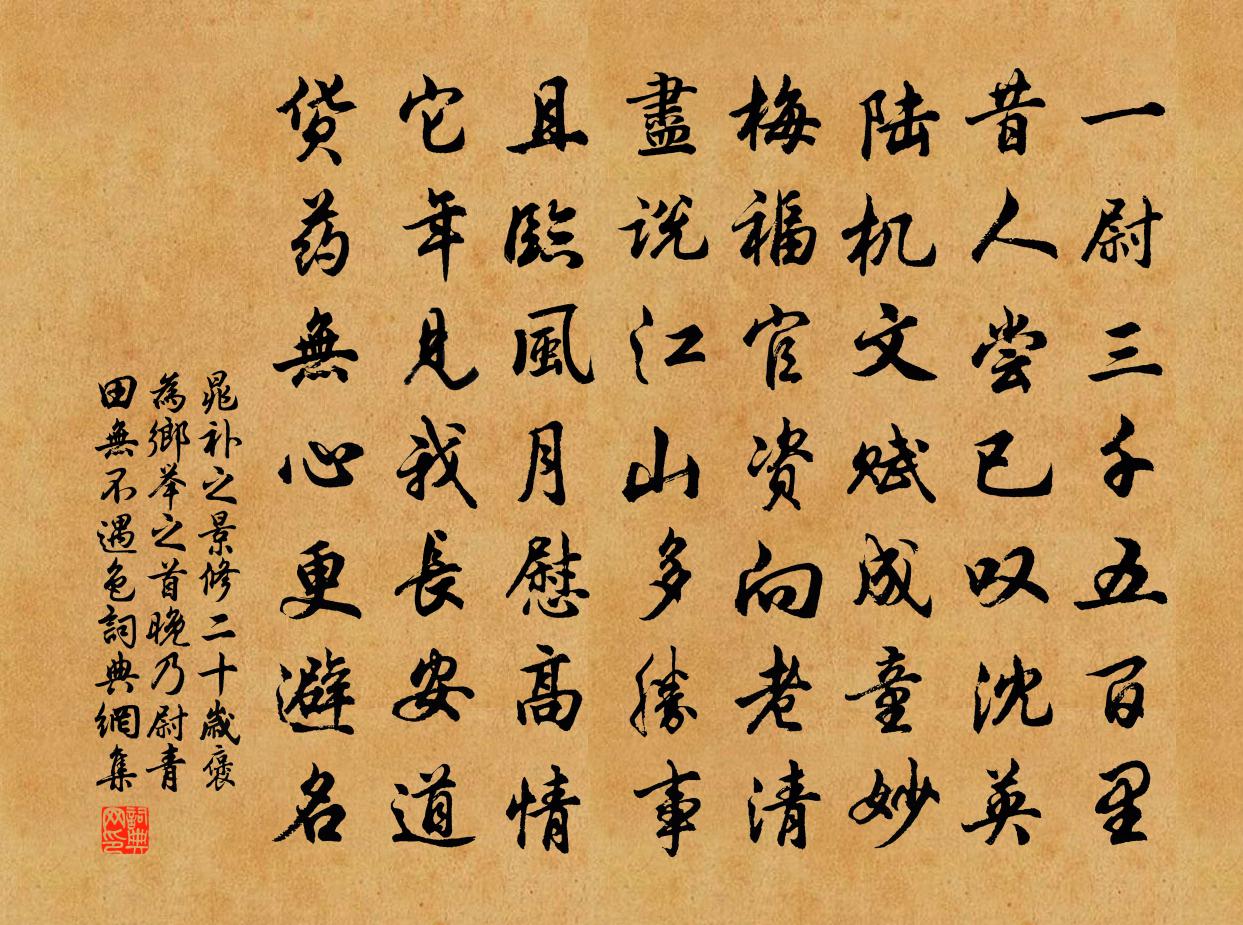 一尉三千五百里
昔人尝已叹沈英
陆机文赋成童妙
梅福官资向老清
盡说江山多勝事
且臨風月慰高情
它年見我長安道
货药無心更避名
晁补之景修二十歲褎
為鄉举之首晚乃尉青
田無不遇色詞典網集
詞典
网印